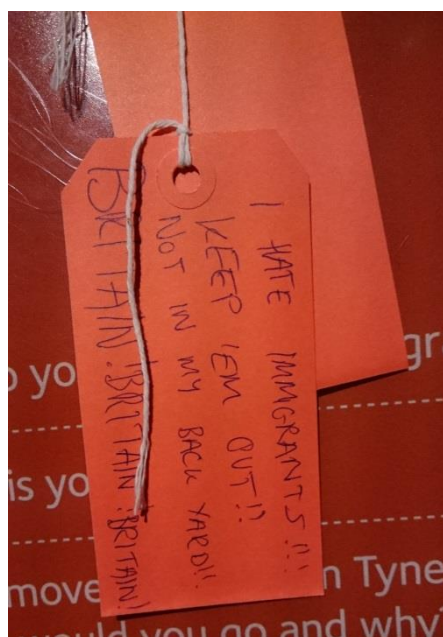 I HATE IMMIGRANTS!!!
KEEP 'EM OUT!!
NOT IN MY BACK YARD!!
BRITAIN!BRITAIN!BRITAIN!
move
Tyne
would you go and why?